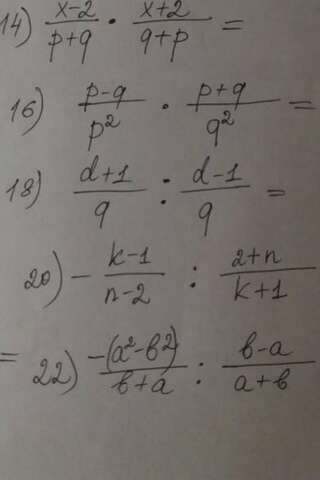 14) (x-2)/(p+q) · (x+2)/(q+p) =
16) (p-q)/p² · (p+q)/q² =
18) (d+1)/9 : (d-1)/9 =
20) - (k-1)/(n-2) : (2+n)/(k+1)
= 22) -(a²-b²)/(b+a) : (b-a)/(a+b)